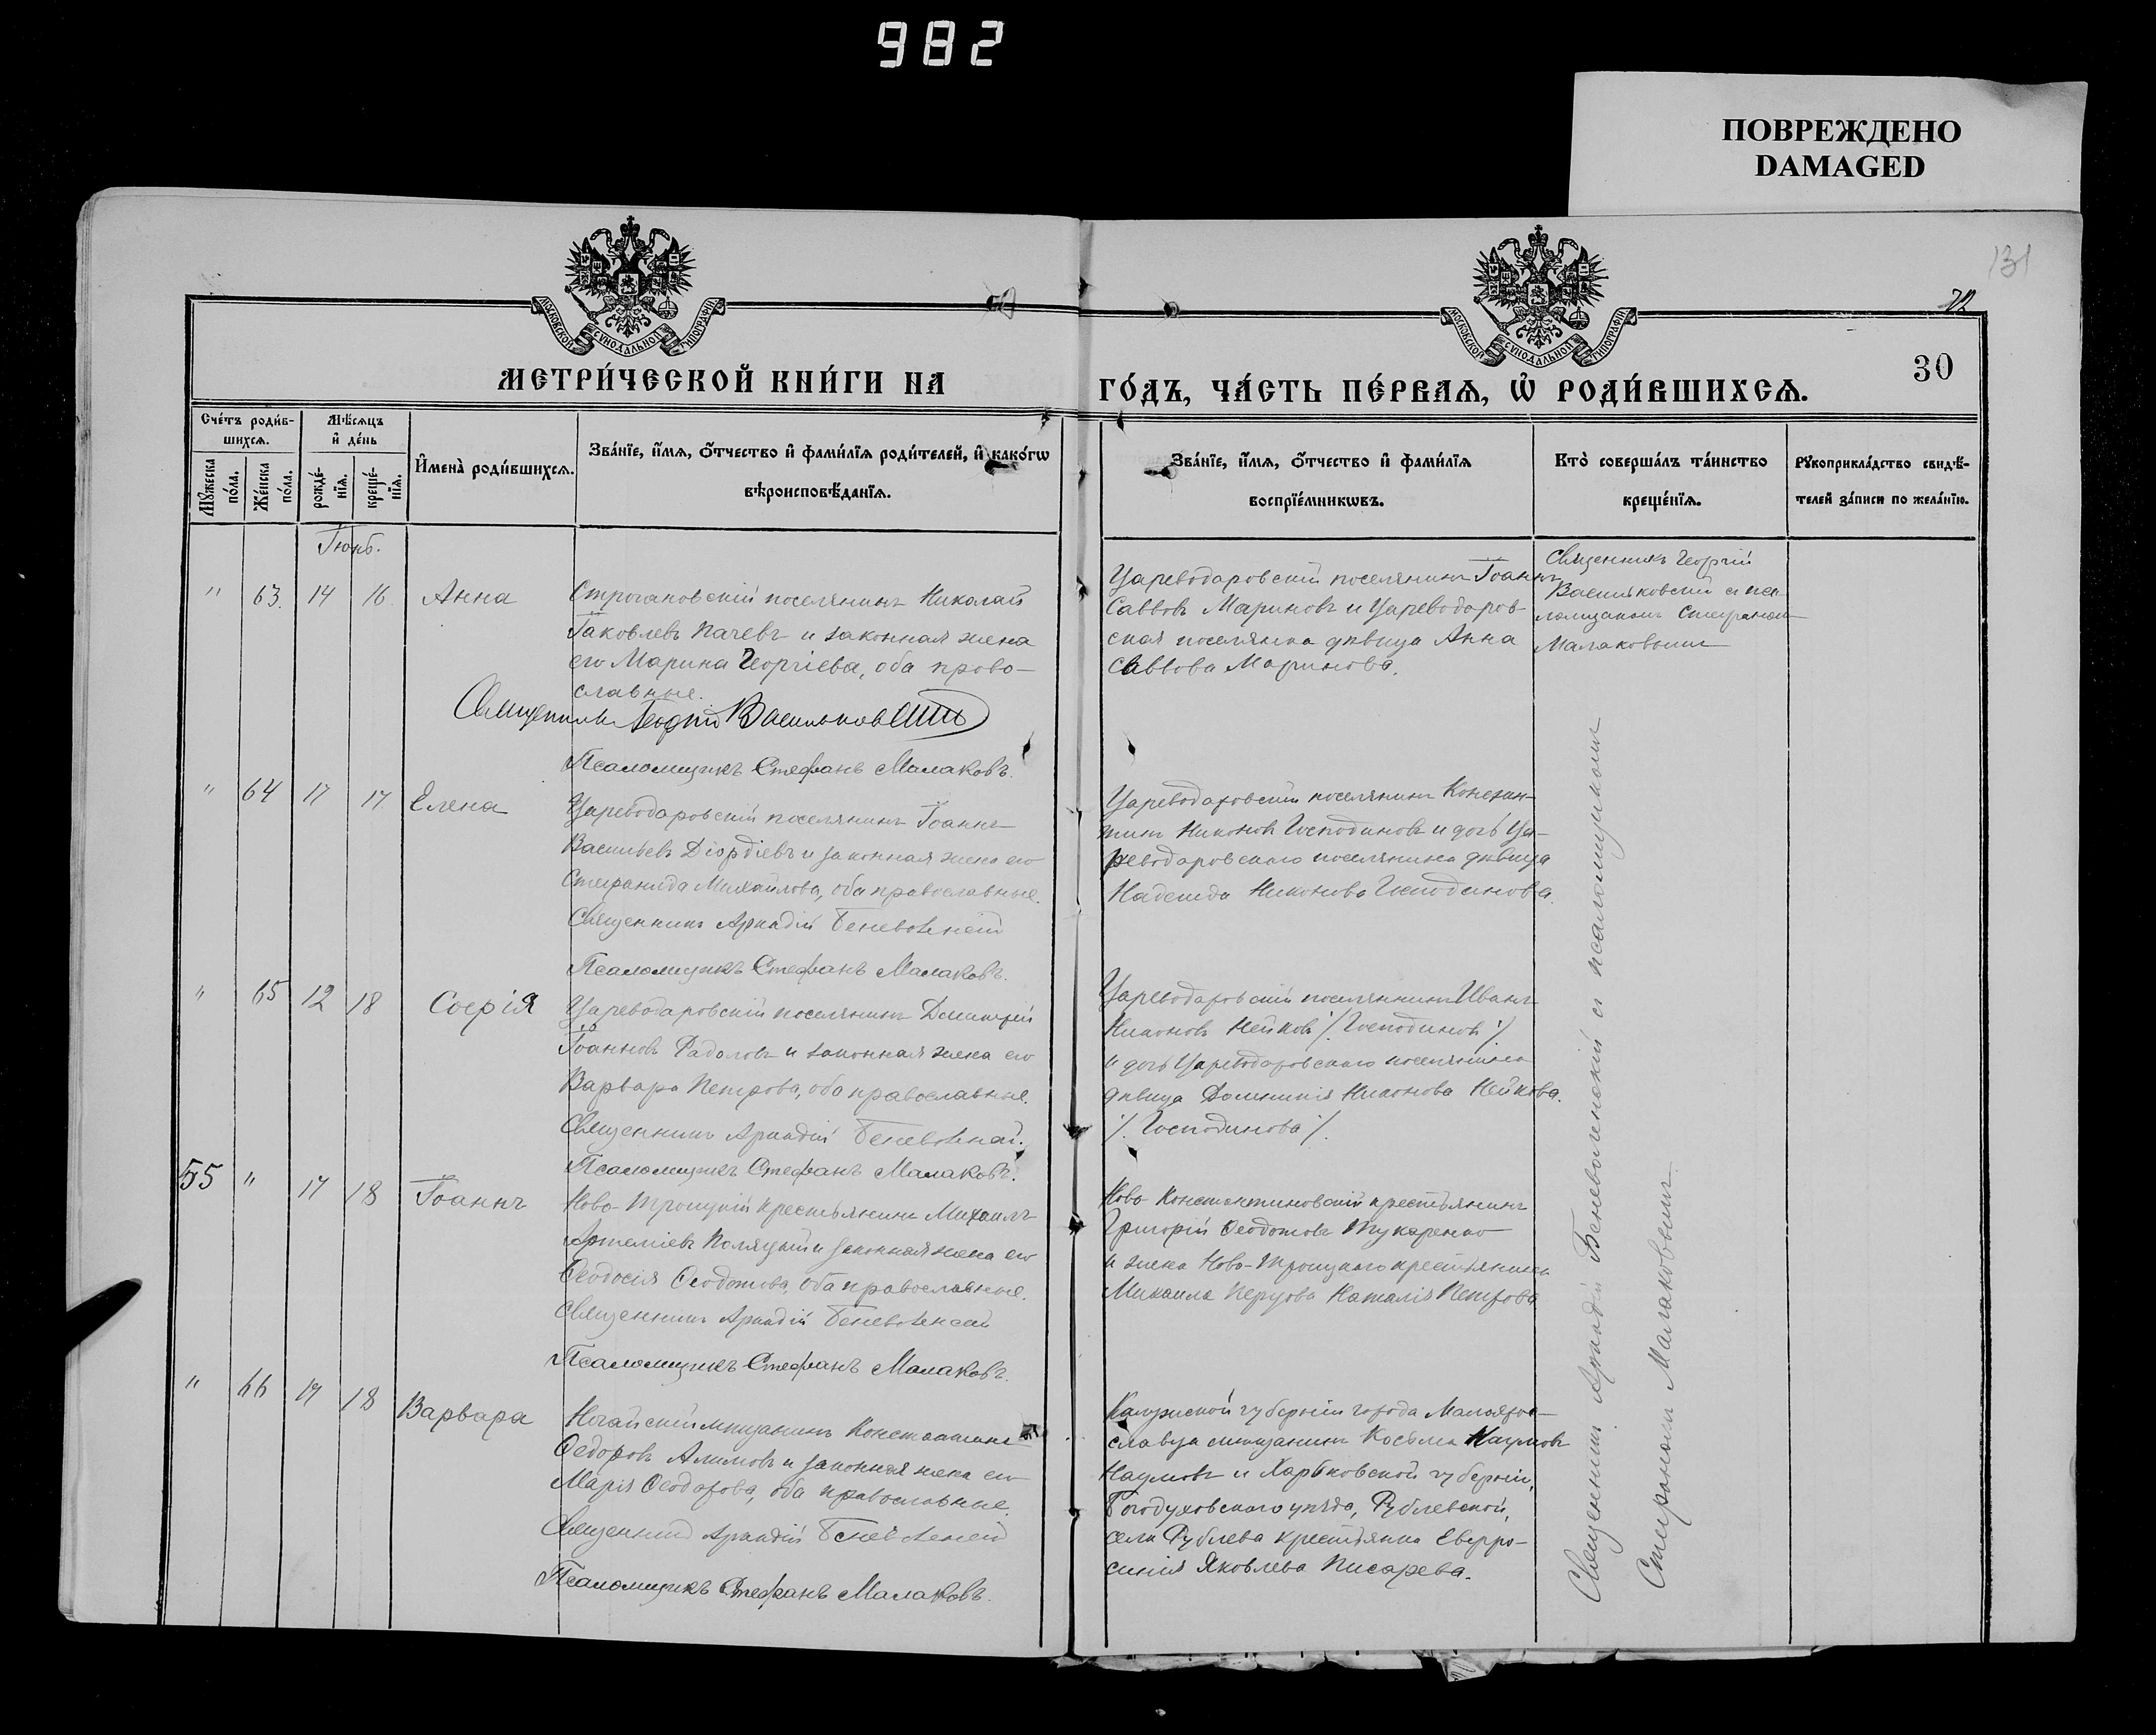 982
ПОВРЕЖДЕНО
DAMAGED
131
72
30
МОСКОВСКОЙ СѴНОДАЛЬНОЙ ТИПОГРАФІИ
МОСКОВСКОЙ СѴНОДАЛЬНОЙ ТИПОГРАФІИ
МЕТРИ́ЧЕСКОЙ КНИ́ГИ НА
ГО́ДЪ, ЧА́СТЬ ПЕ́РВАѦ, Ѡ҆ РОДИ́ВШИХСѦ.
Сче́тъ роди́в-
шихсѧ.
Мꙋ́жеска
по́ла.
Же́нска
по́ла.
Мѣ́сѧцъ
и҆ де́нь
рожде́-
нїѧ.
креще́-
нїѧ.
И҆мена̀ роди́вшихсѧ.
Зва́нїе, и҆́мѧ, ѻ҆́тчество и҆ фами́лїѧ роди́телей, и҆ како́гѡ
вѣроисповѣ́данїѧ.
Зва́нїе, и҆́мѧ, ѻ҆́тчество и҆ фами́лїѧ
воспрїе́мникѡвъ.
Кто̀ соверша́лъ та́инство
креще́нїѧ.
Рꙋкоприкла́дство свидѣ́-
телей за́писи по жела́нїю.
Іюнь.
" 63. 14 16. Анна
Строгановскій поселянинъ Николай
Іаковлевъ Пачевъ и законная жена
его Марина Георгіева, оба право-
славные.
Священникъ Георгій Васильковскій
Псаломщикъ Стефанъ Малаковъ.
Цареводаровскій поселянинъ Іоаннъ
Саввовъ Мариновъ и Цареводаров-
ская поселянка дѣвица Анна
Саввова Маринова.
Священникъ Георгій
Васильковскій съ пса-
ломщикомъ Стефаномъ
Малаковымъ
" 64 17 17 Елена
Цареводаровскій поселянинъ Іоаннъ
Васильевъ Діордіевъ и законная жена его
Стефанида Михайлова, оба православные.
Священникъ Аркадій Беневоленскій
Псаломщикъ Стефанъ Малаковъ.
Цареводаровскій поселянинъ Констан-
тинъ Никоновъ Господиновъ и дочь Ца-
реводаровскаго поселянина дѣвица
Надежда Никонова Господинова.
" 65 12 18 Софія
Цареводаровскій поселянинъ Димитрій
Іоанновъ Радоловъ и законная жена его
Варвара Петрова, оба православные.
Священникъ Аркадій Беневоленскій.
Псаломщикъ Стефанъ Малаковъ.
Цареводаровскій поселянинъ Иванъ
Никоновъ Нейковъ /. Господиновъ ./
и дочь Цареводаровскаго поселянина
дѣвица Домникія Никонова Нейкова.
/. Господинова ./.
55 " 17 18 Іоаннъ
Ново-Троицкій крестьянинъ Михаилъ
Артеміевъ Поляцкій и законная жена его
Ѳеодосія Ѳеодотова, оба православные.
Священникъ Аркадій Беневоленскій
Псаломщикъ Стефанъ Малаковъ.
Ново-Константиновскій крестьянинъ
Григорій Ѳеодотовъ Тукаренко
и жена Ново-Троицкаго крестьянина
Михаила Перцова Наталія Петрова
" 66 17 18 Варвара
Ногайскій мѣщанинъ Константинъ
Ѳедоровъ Алимовъ и законная жена его
Марія Ѳеодорова, оба православные.
Священникъ Аркадій Беневоленскій
Псаломщикъ Стефанъ Малаковъ.
Калужской губерніи города Малояро-
славца мѣщанинъ Косьма Наумовъ
Наумовъ и Харьковской губерніи,
Богодуховскаго уѣзда, Рублевской,
села Рублева крестьянка Евфро-
синія Яковлева Писарева.
Священникъ Аркадій Беневоленскій съ псаломщикомъ
Стефаномъ Малаковымъ